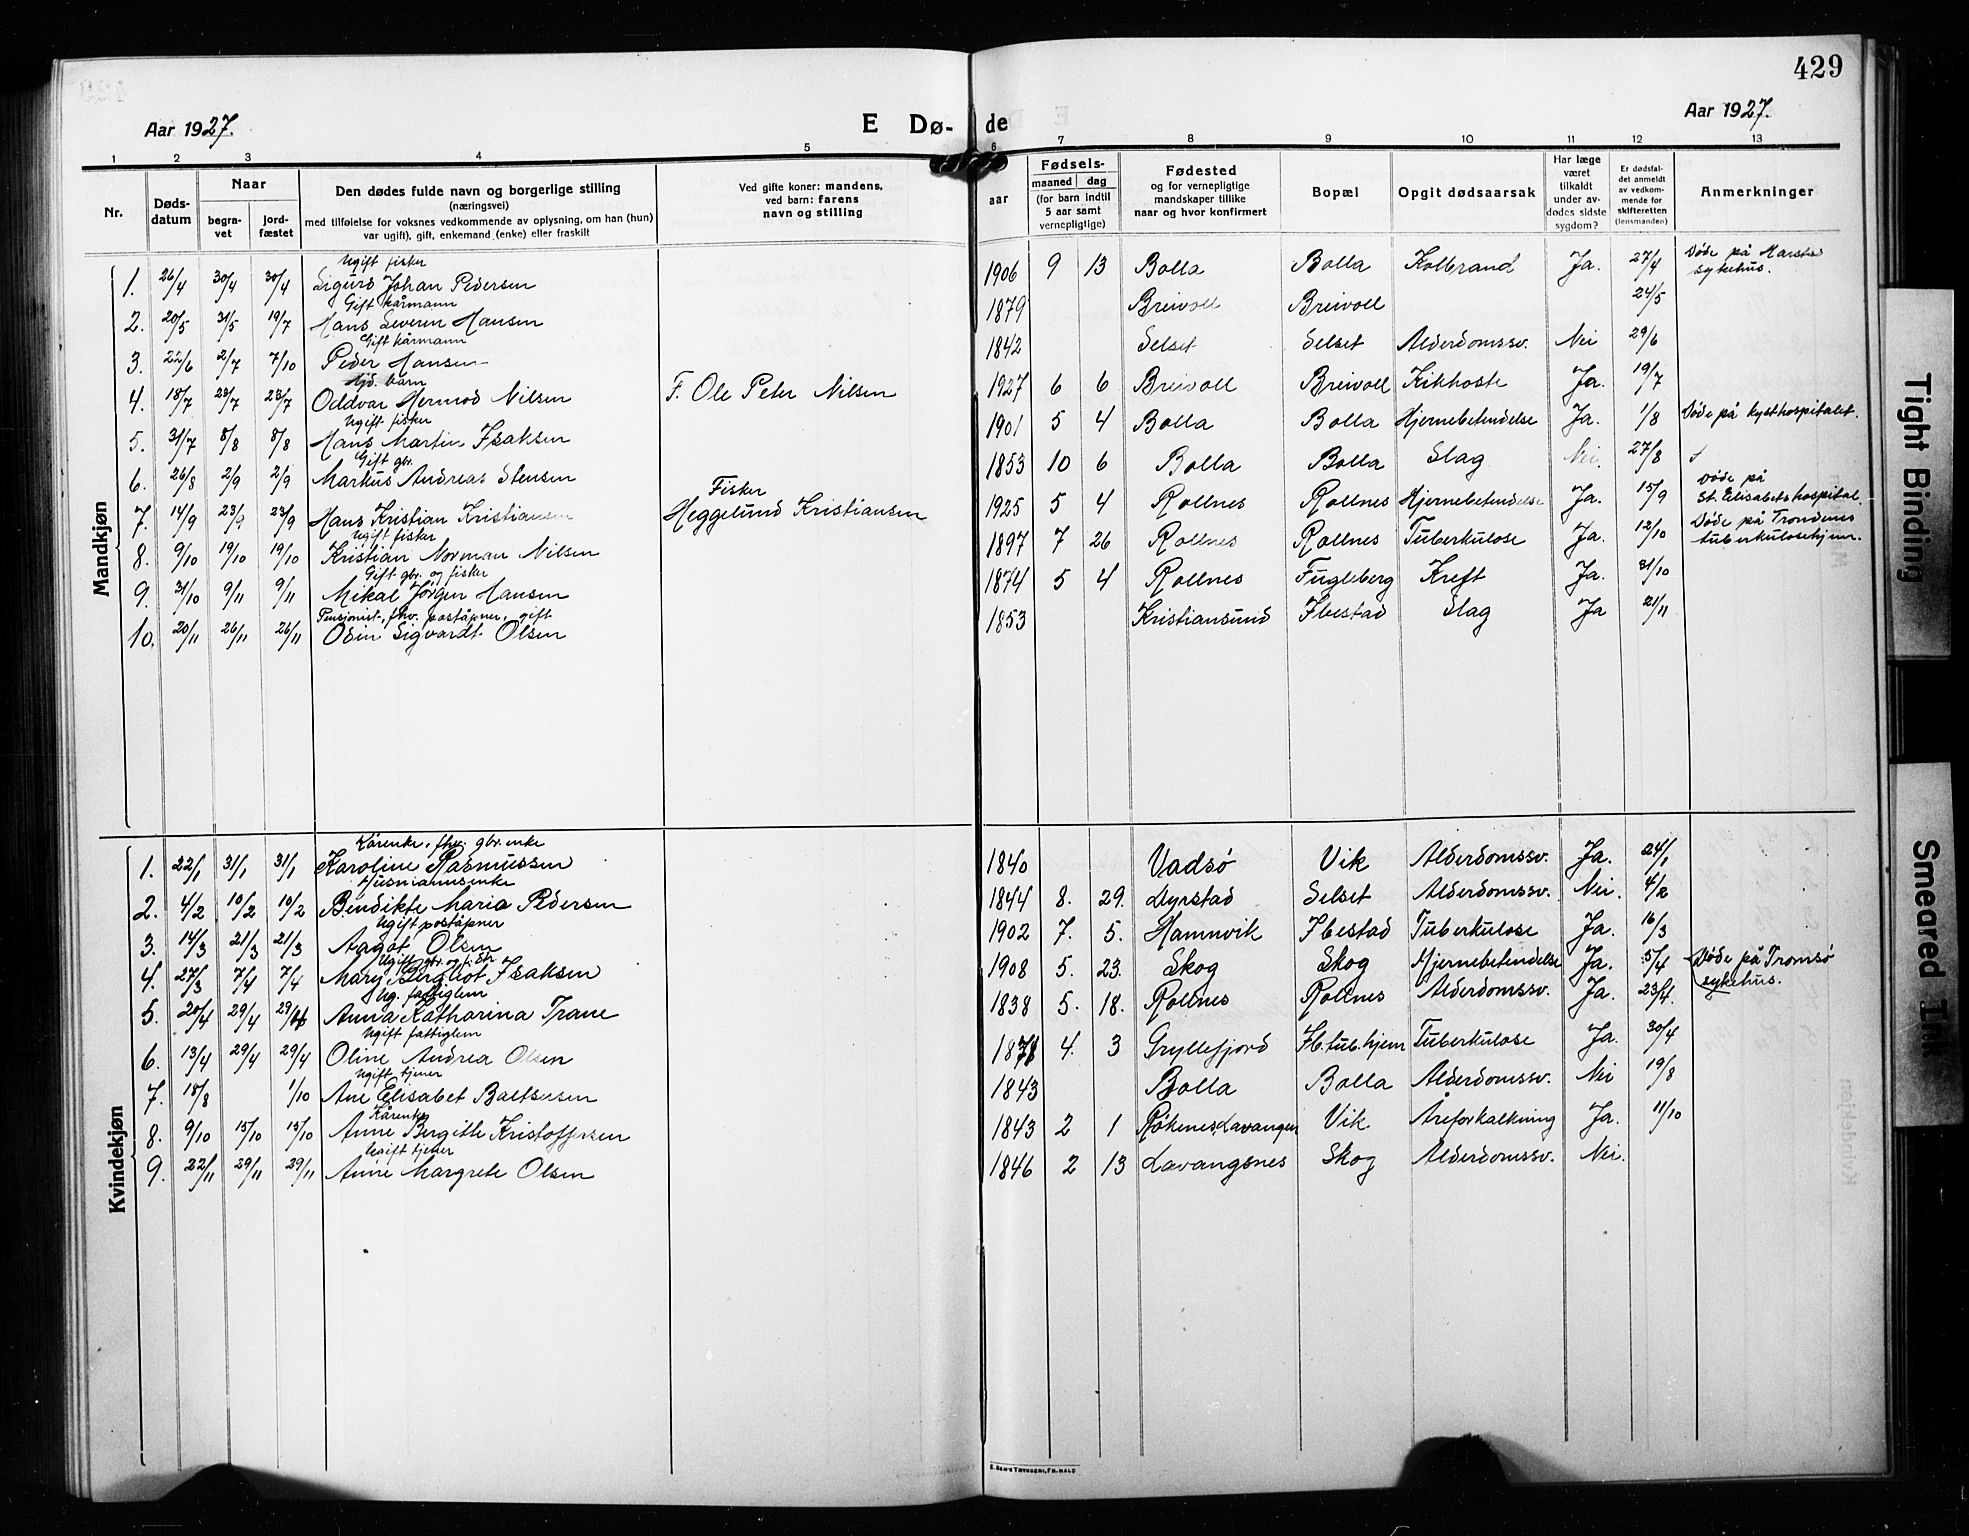 429
Aar 1927.
E Dø-
de
Aar 1927.
1 2 3 4 5 6 7 8 9 10 11 12 13
Nr.
Døds-
datum
Naar
begra-
vet
jord-
fæstet
Den dødes fulde navn og borgerlige stilling
(næringsvei)
med tilføielse for voksnes vedkommende av oplysning, om han (hun)
var ugift), gift, enkemand (enke) eller fraskilt
Ved gifte koner: mandens,
ved barn: farens
navn og stilling
aar
Fødsels-
maaned dag
(for barn indtil
5 aar samt
vernepligtige)
Fødested
og for vernepligtige
mandskaper tillike
naar og hvor konfirmert
Bopæl
Opgit dødsaarsak
Har læge
været
tilkaldt
under av-
dødes sidste
sygdom?
Er dødsfal-
det anmeldt
av vedkom-
mende for
skifteretten
(lensmanden)
Anmerkninger
Mandkjøn
Ugift fisker
1. 26/4 30/4 30/4 Sigurd Johan Pedersen 1906 9 13 Bolla Bolla Koldbrand Ja. 27/4 Døde på Harstad
sykehus.
Gift kårmann
2. 20/5 31/5 19/7 Hans Severin Hansen 1879 Breivoll Breivoll 24/5
Gift kårmann
3. 22/6 2/7 7/10 Peder Hansen 1842 Selset Selset Alderdomssv. Nei 29/6
barn
4. 18/7 23/7 23/7 Oddvar Hermod Nilsen F. Ole Peter Nilsen 1927 6 6 Breivoll Breivoll Kikhoste Ja. 19/7
Ugift fisker
5. 31/7 8/8 8/8 Hans Martin Isaksen 1901 5 4 Bolla Bolla Hjernebetendelse Ja. 1/8 Døde på kysthospitalet.
Gift gbr.
6. 26/8 2/9 2/9 Markus Andreas Stensen 1853 10 6 Bolla Bolla Slag Nei. 27/8
Fisker
7. 14/9 23/9 23/9 Hans Kristian Kristiansen Heggelund Kristiansen 1925 5 4 Rollnes Rollnes Hjernebetendelse Ja. 15/9 Døde på
St. Elisabets hospital.
Ugift fisker
8. 9/10 19/10 19/10 Kristian Norman Nilsen 1897 7 26 Rollnes Rollnes Tuberkulose Ja. 12/10 Døde på Trondenes
tuberkulosehjem.
Gift gbr. og fisker
9. 31/10 9/11 9/11 Mikal Jørgen Hansen 1874 5 4 Rollnes Fugleberg Kreft Ja. 31/10
Pensjonist, fhv. poståpner, gift
10. 20/11 26/11 26/11 Odin Sigvardt Olsen 1853 Kristiansund Ibestad Slag Ja 21/11
Kvindekjøn
Kårenke, fhv. gbr. enke
1. 22/1 31/1 31/1 Karoline Rasmussen 1840 Vadsø Vik Alderdomssv. Ja. 24/1
Husmannsenke
2. 4/2 10/2 10/2 Bendikte Maria Pedersen 1844 8. 29. Dyrstad Selset Alderdomssv. Nei. 4/2
Ugift poståpner
3. 14/3 21/3 21/3 Aagot Olsen 1902 7. 5. Hamnvik Ibestad Tuberkulose Ja. 16/3
Ugift
4. 27/3 7/4 7/4 Mary Bergliot Isaksen 1908 5. 23. Skog Skog Hjernebetendelse Ja. 5/4 Døde på Tromsø
sykehus.
Ug. fattiglem
5. 20/4 29/4 29/4 Anna Katharina Trane 1838 5. 18. Rollnes Rollnes Alderdomssv. Ja. 23/4.
Ugift fattiglem
6. 13/4 29/4 29/4 Oline Andrea Olsen 4. 3 Gryllefjord Ib. tub. hjem Tuberkulose Ja. 30/4
Ugift tjener
7. 18/8 1/10 Ane Elisabet Baltsersen 1843 Bolla Bolla Alderdomssv. Nei 19/8
Kårenke
8. 9/10 15/10 15/10 Anne Bergitte Kristoffersen 1843 2 1 Røkenes, Lavangen Vik Åreforkalkning Ja. 11/10
Ugift tjener
9. 22/11 29/11 29/11 Anne Margrete Olsen 1846 2 13 Lavangsnes Skog Alderdomssv. Nei.
E. SEM'S TRYKKERI, FR.HALD
Tight Binding
Smeared Ink